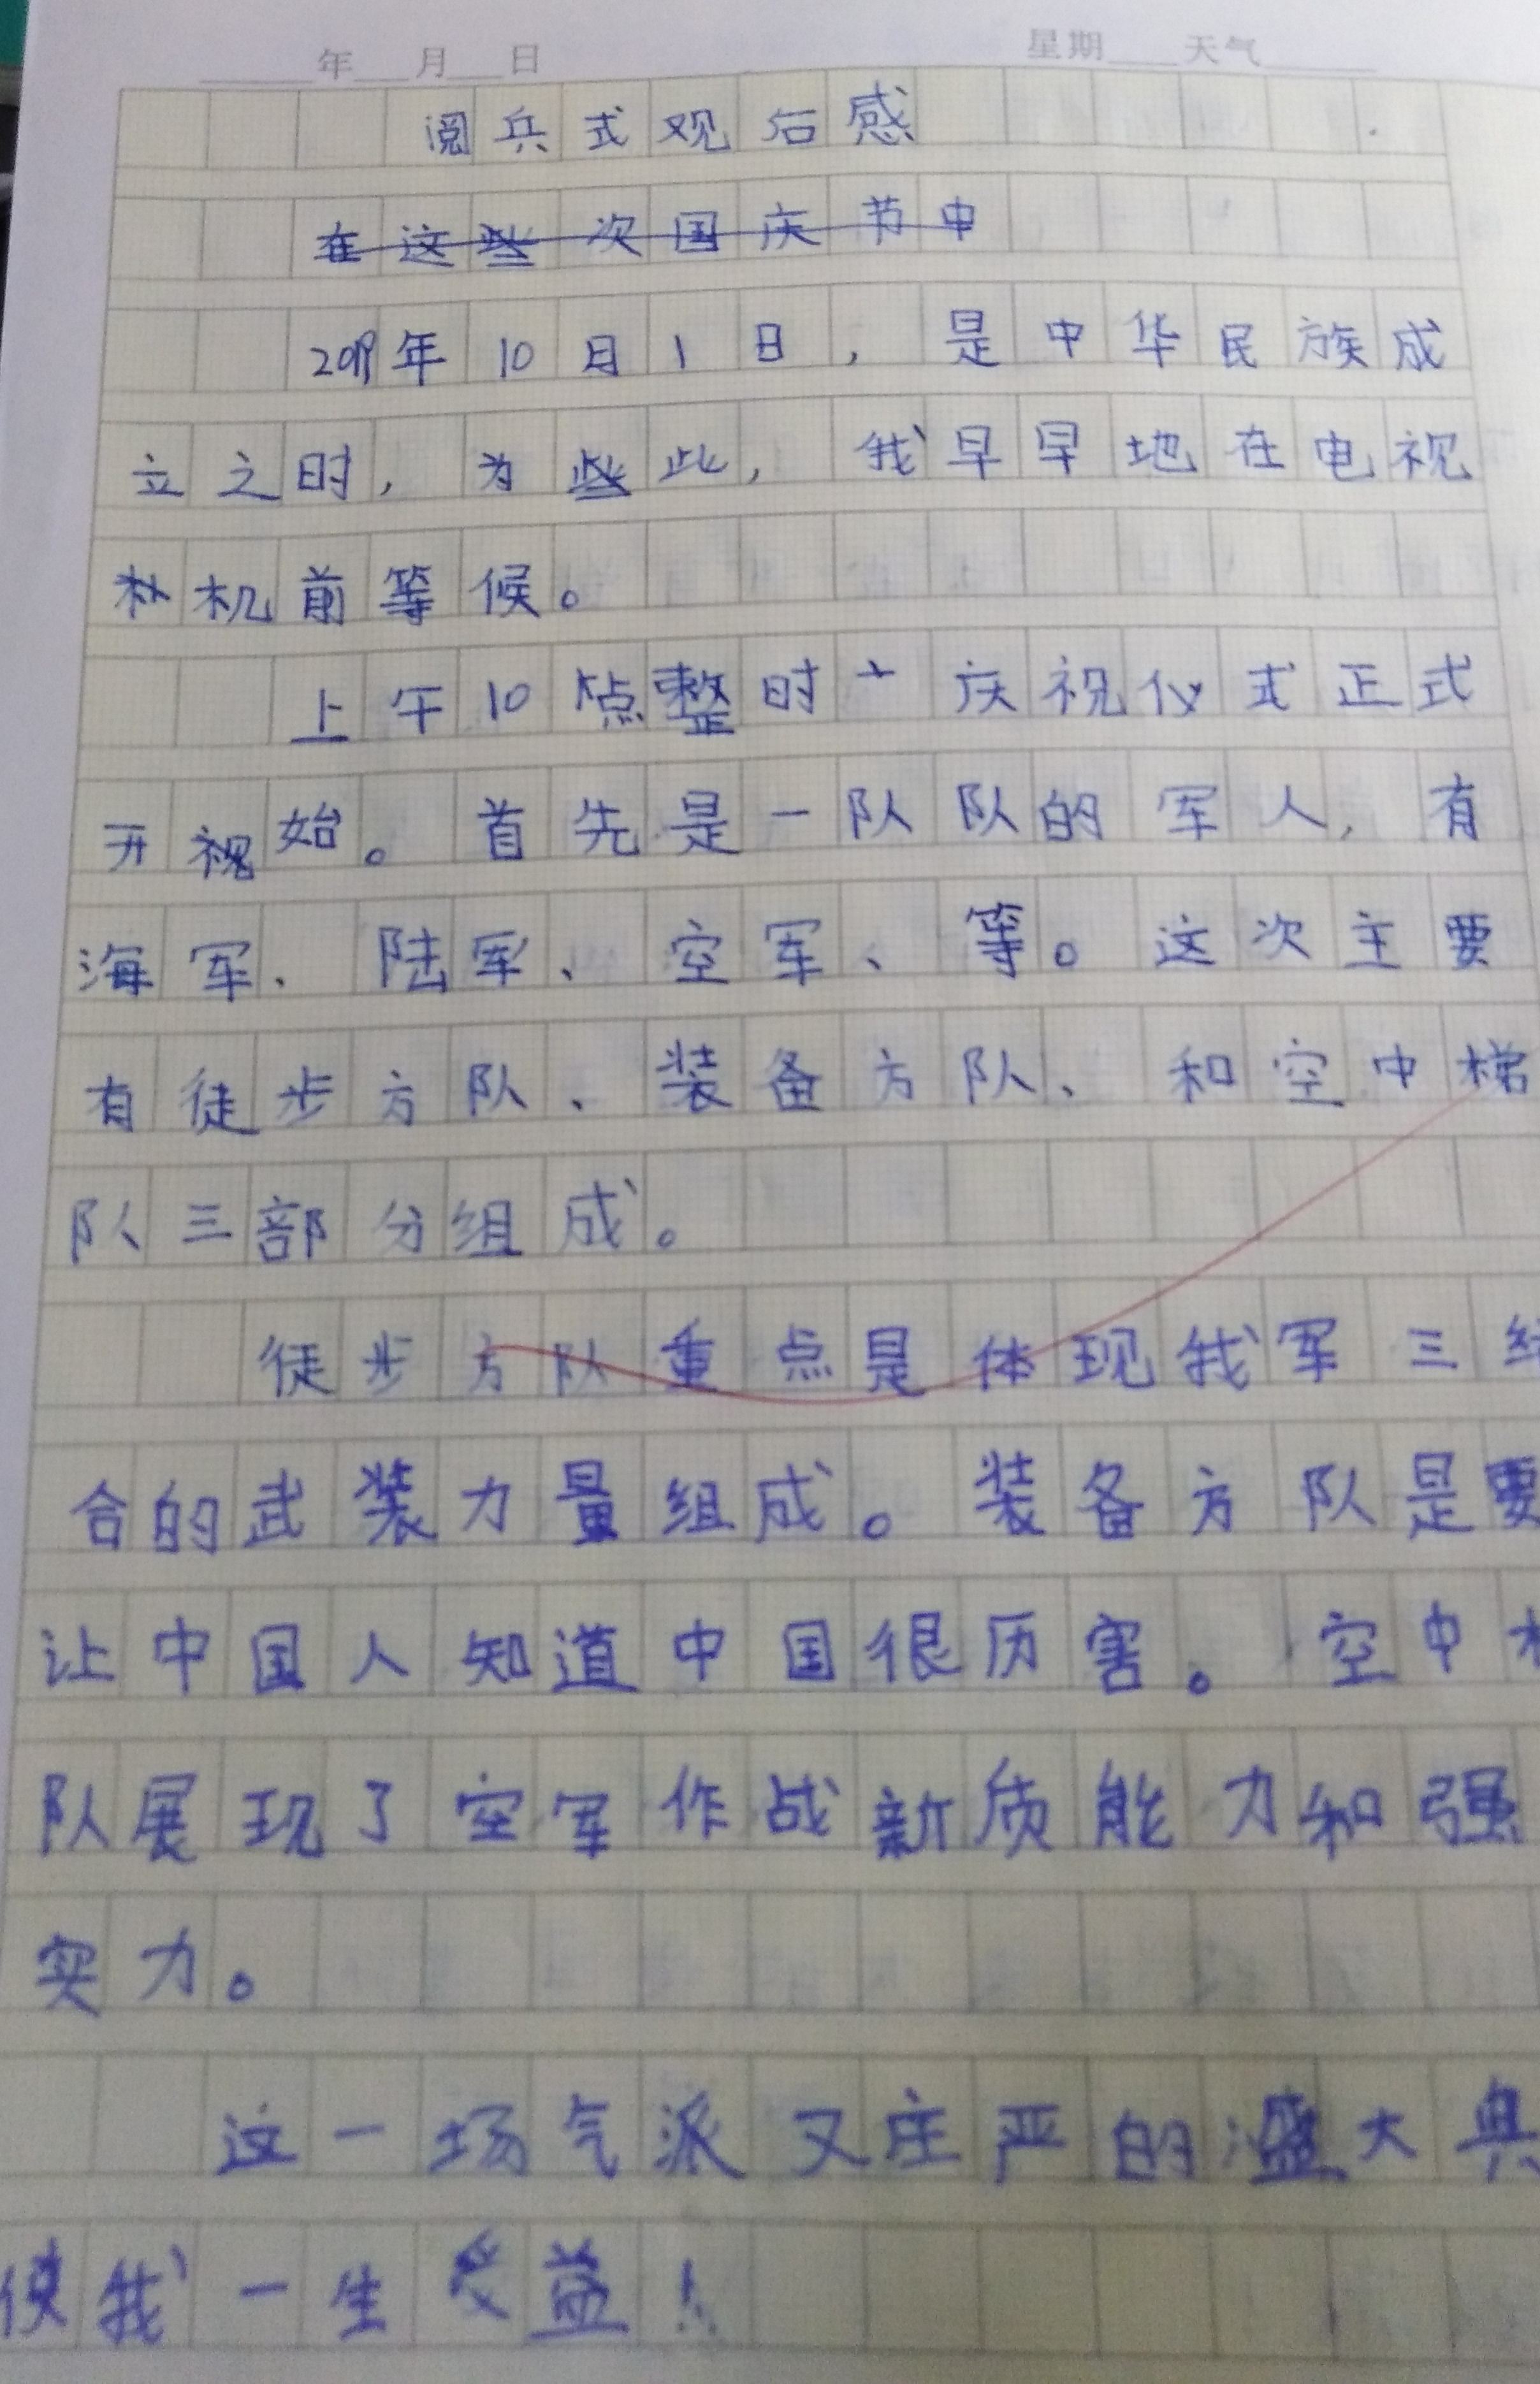 年 月 日 星期 天气
阅兵式观后感
在这些次国庆节中
2019年10月1日，是中华民族成
立之时，为此，我早早地在电视
机前等候。
上午10点整时庆祝仪式正式
开始。首先是一队队的军人，有
海军、陆军、空军、等。这次主要
有徒步方队、装备方队、和空中梯
队三部分组成。
徒步方队重点是体现我军三结
合的武装力量组成。装备方队是要
让中国人知道中国很历害。空中
队展现了空军作战新质能力和强
实力。
这一场气派又庄严的盛大典
使我一生受益！